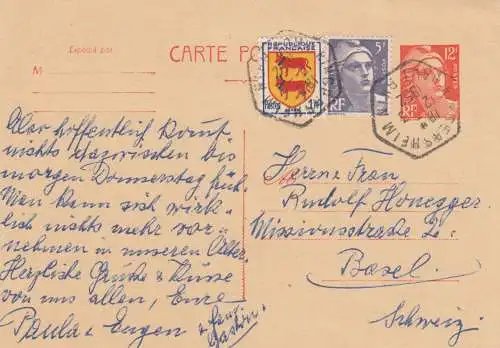 Expédié par
CARTE PO
M
RÉPUBLIQUE FRANÇAISE
5F
RF
12F
POSTES
RF
Also hoffentlich kommt
nichts dazwischen bis
morgen Donnerstag früh.
Man kann sich wirk-
lich nichts mehr vor-
nehmen in unserem Alter.
Herzliche Grüsse & Küsse
von uns allen, Eure
Paula & Eugen
Herrn & Frau
Rudolf Honegger
Missionsstrasse 2
Basel.
Schweiz.